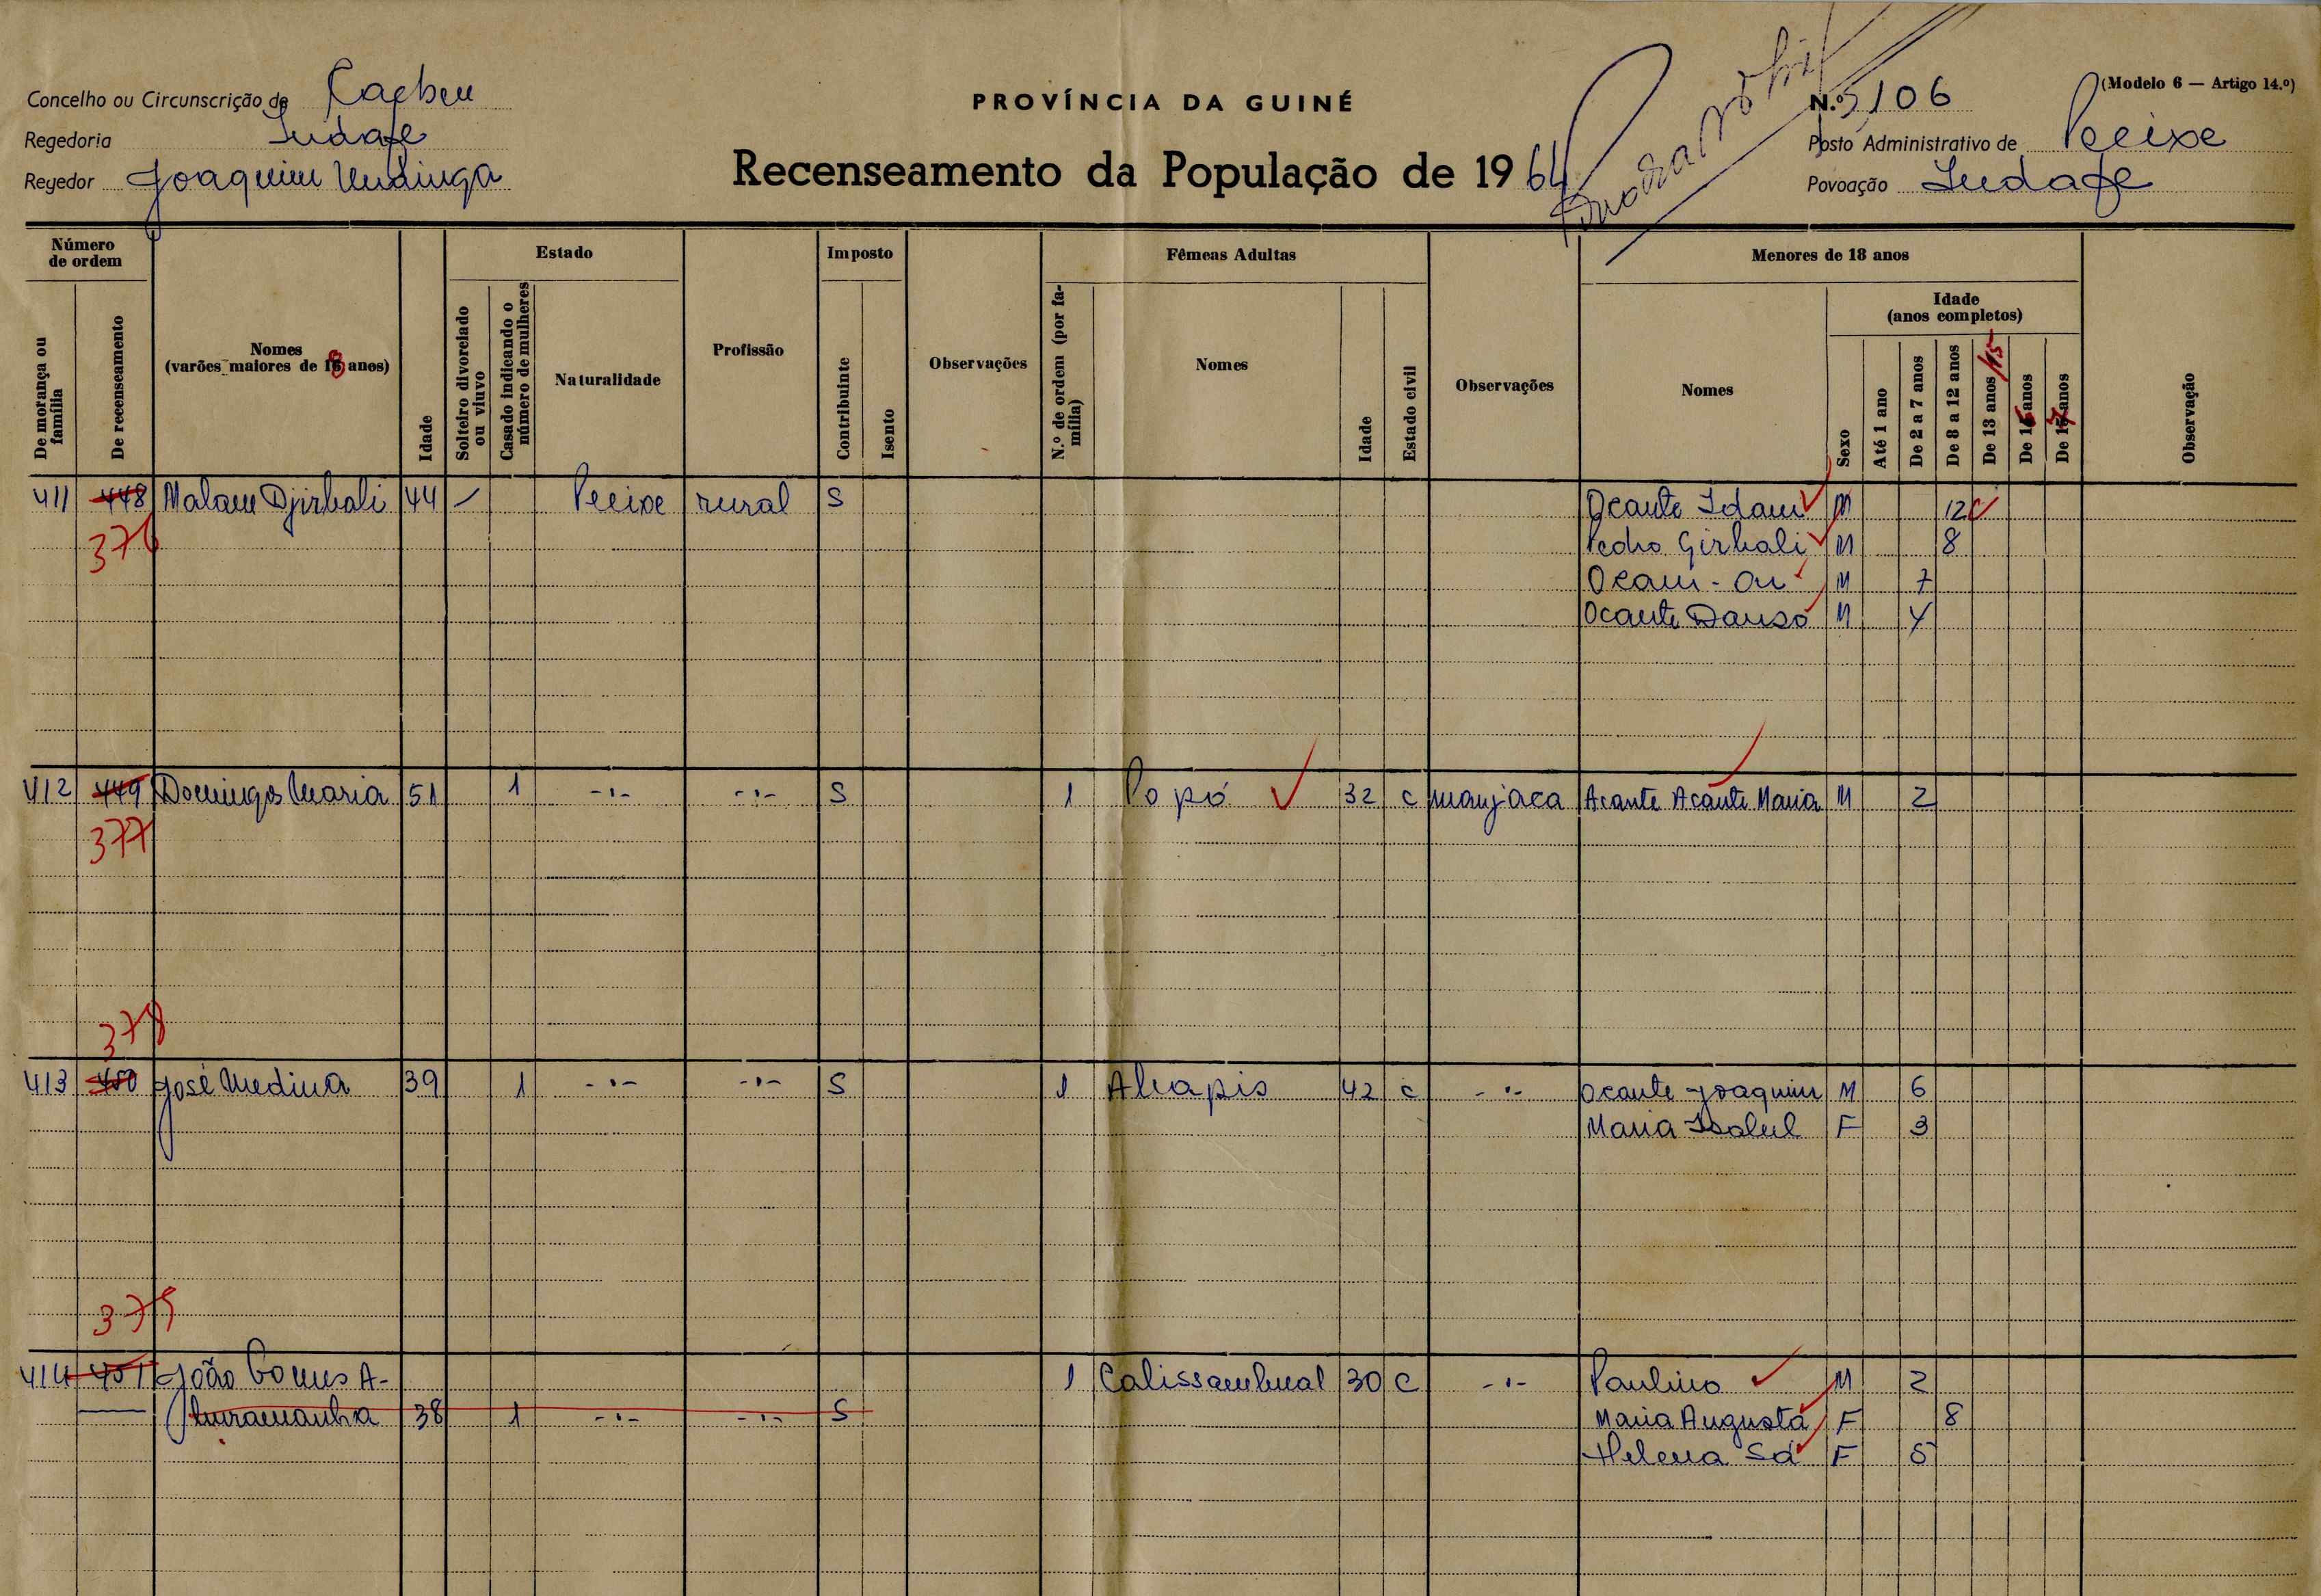 Concelho ou Circunscrição de
Regedoria
Regedor Joaquim
PROVÍNCIA DA GUINÉ
Recenseamento da População de 1964
N.º 106
(Modelo 6 — Artigo 14.º)
Posto Administrativo de Peeixe
Povoação
Número de ordem
De morança ou família
De recenseamento
Nomes
(varões maiores de 18 anos)
Idade
Estado
Solteiro divorciado ou viuvo
Casado indicando o número de mulheres
Naturalidade
Profissão
Imposto
Contribuinte
Isento
Observações
Fêmeas Adultas
N.º de ordem (por família)
Nomes
Idade
Estado civil
Observações
Menores de 18 anos
Nomes
Sexo
Idade
(anos completos)
Até 1 ano
De 2 a 7 anos
De 8 a 12 anos
De 13 anos /15
De 16 anos
De 17 anos
Observação
411 448 Malam Djirbali 44 — Peeixe rural S Ocante Idami M 12
376 Pedro Girbali M 8
Ocam-On M 7
Ocante Danso M 4
412 449 Domingos Maria 51 1 -"- -"- S 1 Popó 32 C manjaca Acante Acante Maria M 2
377
378
413 450 José Medina 39 1 -"- -"- S 1 42 C -"- Ocante Joaquim M 6
Maria Isabel F 3
379
414 451 João Gomes A- 1 Calissambual 30 C -"- Paulino M 2
38 1 -"- -"- S Maria Augusta F 8
Helena Sá F 5